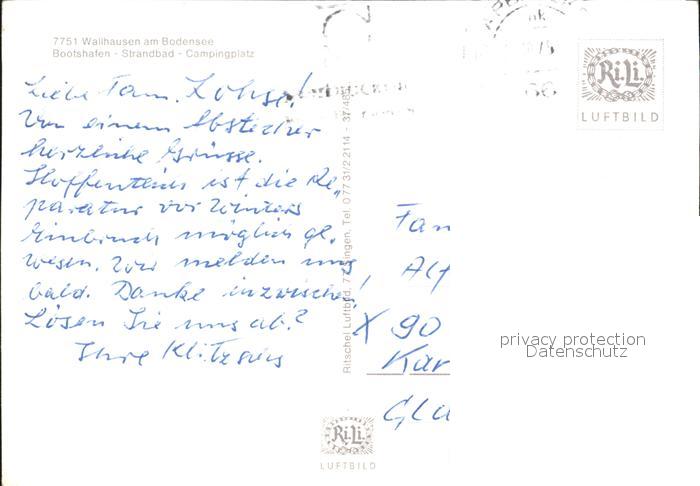 7751 Wallhausen am Bodensee
Bootshafen - Strandbad - Campingplatz
Liebe Fam. Kohse!
Von einem Abstecher
herzliche Grüsse.
Hoffentlich ist die Re„
paratur vor Winters
Einbruch möglich ge„
wesen. Wir melden uns
bald. Danke inzwischen!
Lösen Sie uns ab?
Ihre
Ritschel Luftbild, Tel. 07731/22114 - 37/48
Fam
X 90
Kar
Ri.Li.
LUFTBILD
Ri.Li.
LUFTBILD
privacy protection
Datenschutz